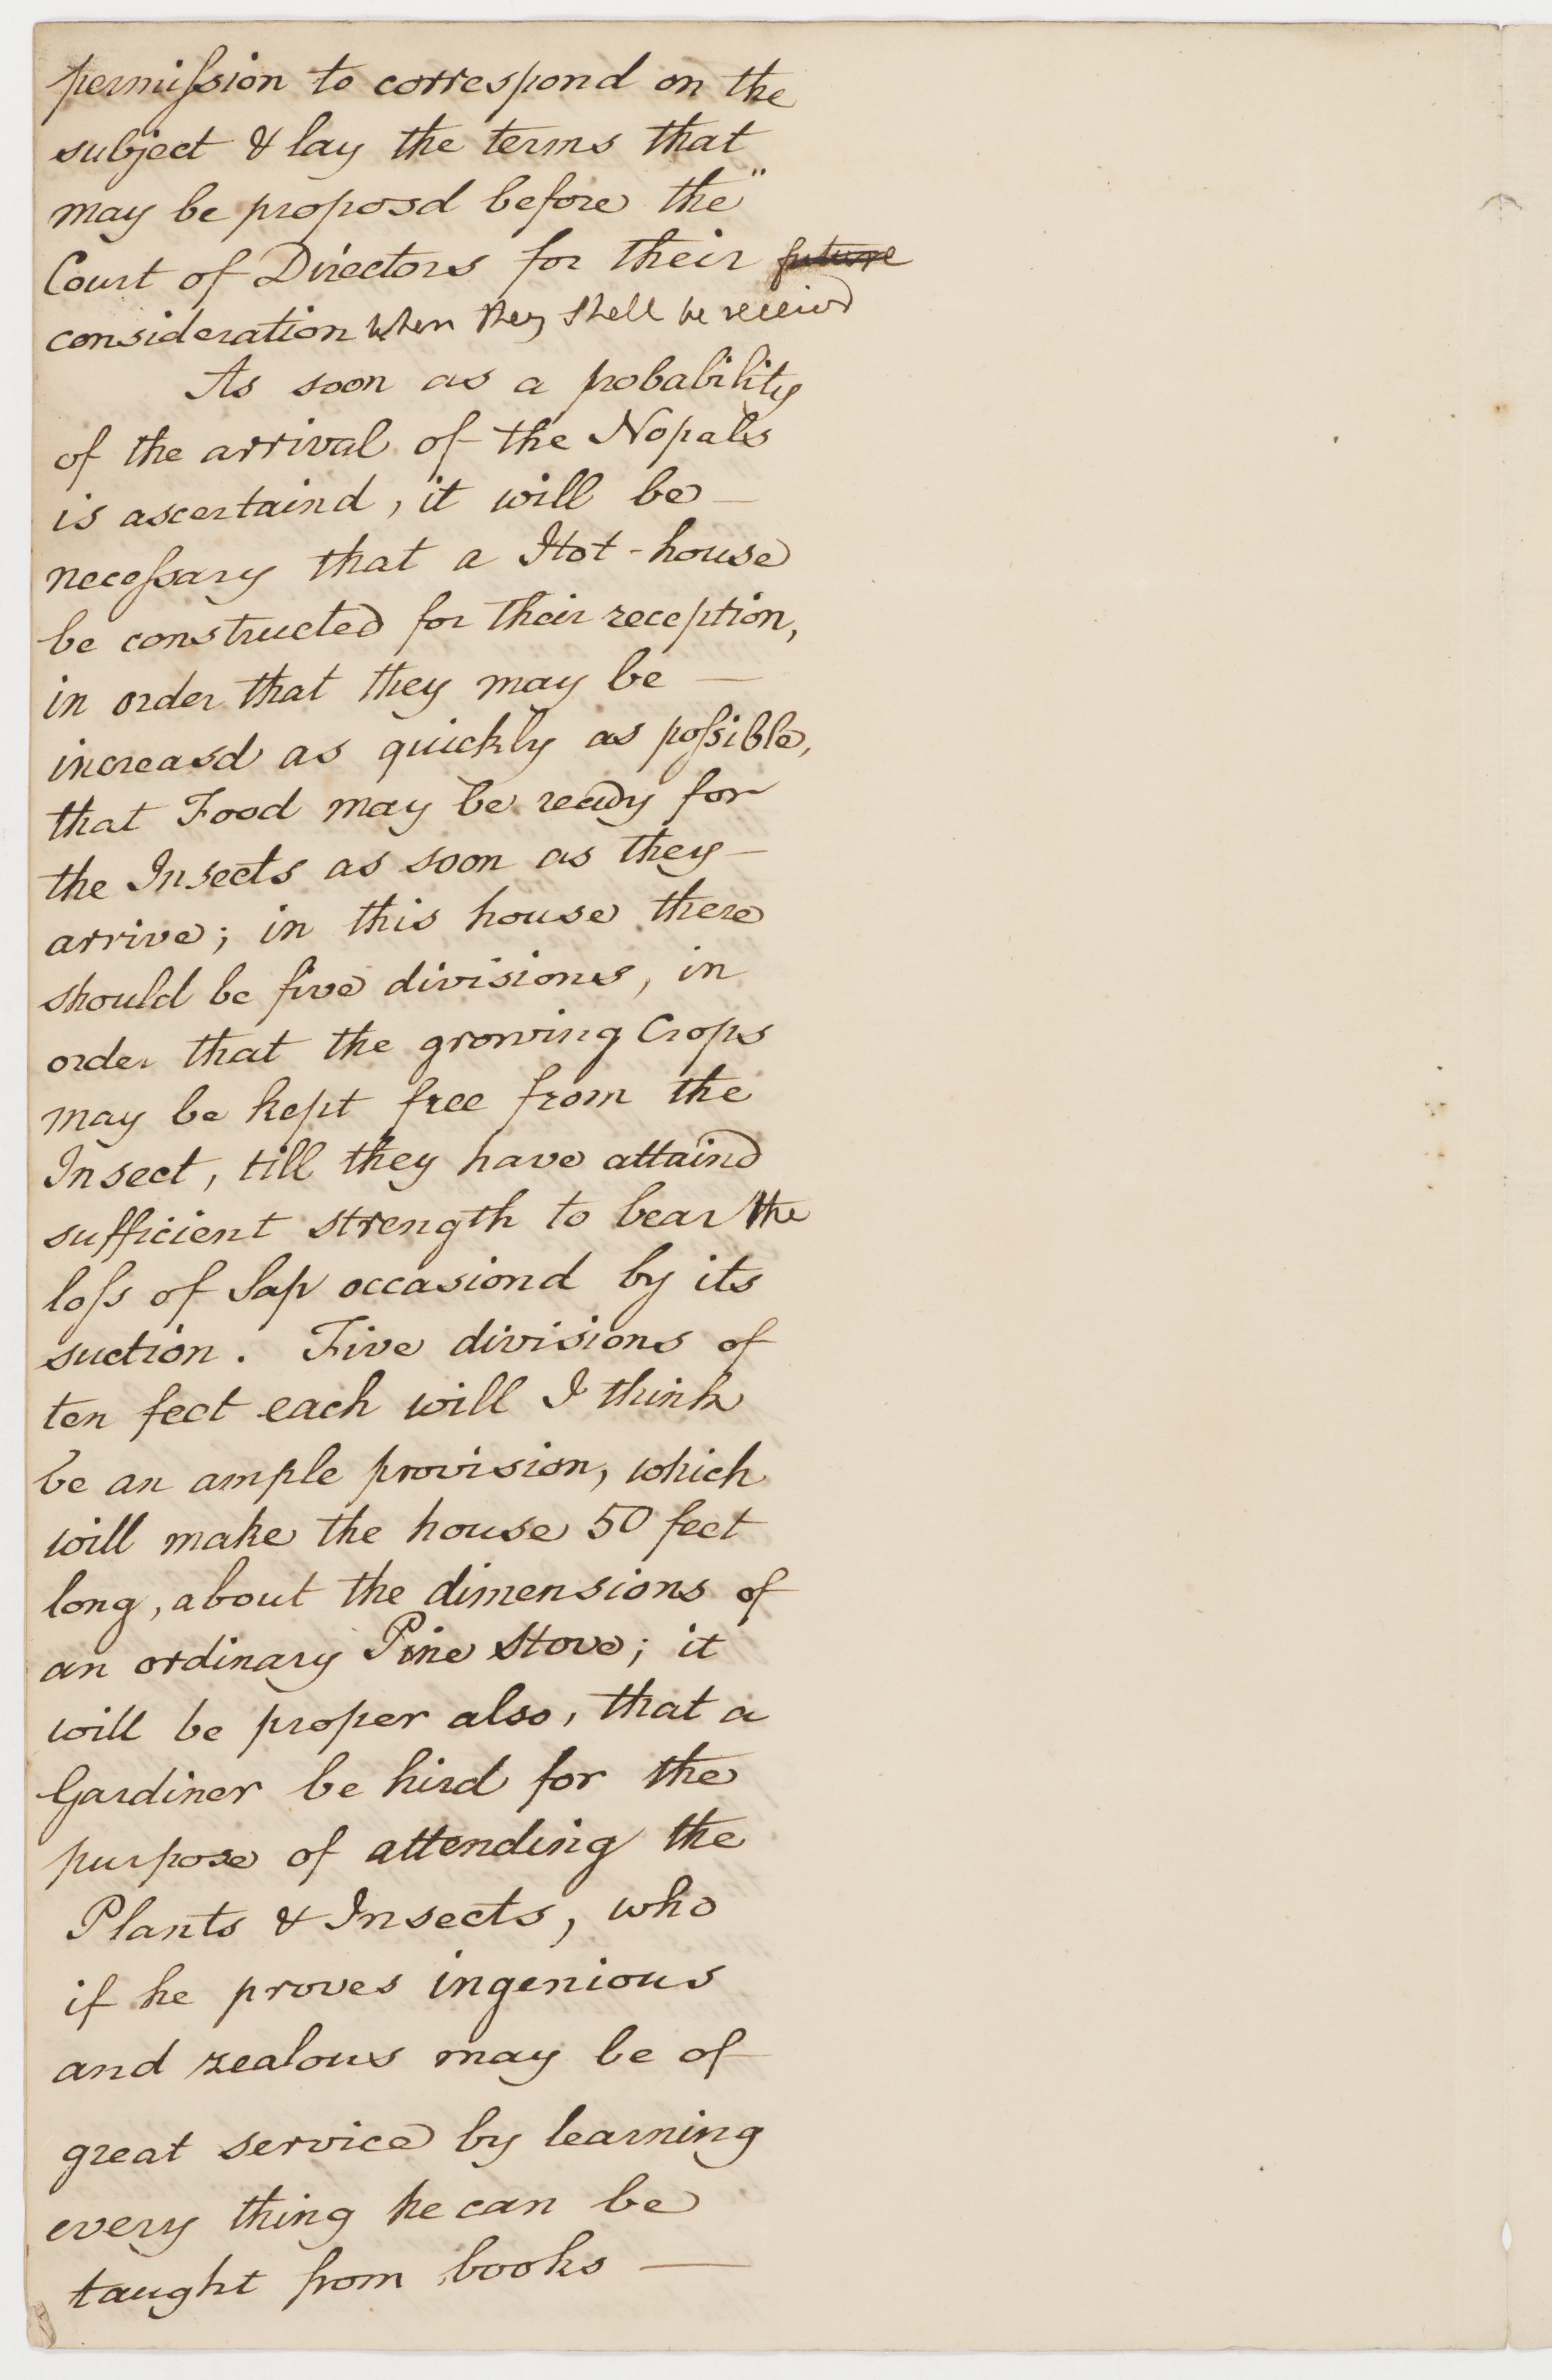 permiſsion to correspond on the
subject & lay the terms that
may be proposd before the"
Court of Directors for their future
consideration when they shall be receivd
As soon as a probability
of the arrival of the Nopals
is ascertaind, it will be —
neceſsary that a Hot-house
be constructed for their reception,
in order that they may be —
increasd as quickly as poſsible,
that Food may be ready for
the Insects as soon as they —
arrive; in this house there
should be five divisions, in
order that the growing Crops
may be kept free from the
Insect, till they have attaind
sufficient strength to bear the
loſs of Sap occasiond by its
suction. Five divisions of
ten feet each will I think
be an ample provision, which
will make the house 50 feet
long, about the dimensions of
an ordinary Pine Stove; it
will be proper also, that a
Gardiner be hird for the
purpose of attending the
Plants & Insects, who
if he proves ingenious
and zealous may be of
great service by learning
every thing he can be
taught from books —